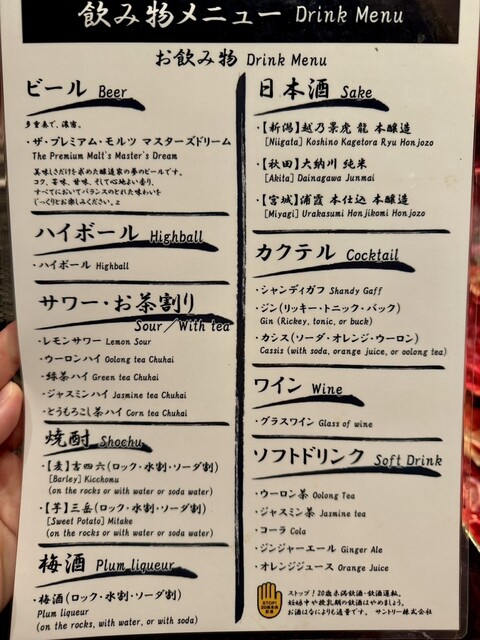 飲み物メニュー Drink Menu
お飲み物 Drink Menu
ビール Beer
多重奏で、濃密。
・ザ・プレミアム・モルツ マスターズドリーム
The Premium Malt's Master's Dream
美味しさだけを求めた醸造家の夢のビールです。
コク、苦味、甘味、そして心地よい香り、
すべてにおいてバランスのとれた味わいを
じっくりとお楽しみください。
ハイボール Highball
・ハイボール Highball
サワー・お茶割り
Sour／With tea
・レモンサワー Lemon Sour
・ウーロンハイ Oolong tea Chuhai
・緑茶ハイ Green tea Chuhai
・ジャスミンハイ Jasmine tea Chuhai
・とうもろこし茶ハイ Corn tea Chuhai
焼酎 Shochu
・【麦】吉四六(ロック・水割・ソーダ割)
[Barley] Kicchomu
(on the rocks or with water or soda water)
・【芋】三岳(ロック・水割・ソーダ割)
[Sweet Potato] Mitake
(on the rocks or with water or soda water)
梅酒 Plum liqueur
・梅酒(ロック・水割・ソーダ割)
Plum liqueur
(on the rocks, with water, or with soda)
日本酒 Sake
・【新潟】越乃景虎 龍 本醸造
[Niigata] Koshino Kagetora Ryu Honjozo
・【秋田】大納川 純米
[Akita] Dainagawa Junmai
・【宮城】浦霞 本仕込 本醸造
[Miyagi] Urakasumi Honjikomi Honjozo
カクテル Cocktail
・シャンディガフ Shandy Gaff
・ジン(リッキー・トニック・バック)
Gin (Rickey, tonic, or buck)
・カシス(ソーダ・オレンジ・ウーロン)
Cassis (with soda, orange juice, or oolong tea)
ワイン Wine
・グラスワイン Glass of wine
ソフトドリンク Soft Drink
・ウーロン茶 Oolong Tea
・ジャスミン茶 Jasmine tea
・コーラ Cola
・ジンジャーエール Ginger Ale
・オレンジジュース Orange Juice
STOP!
ストップ！20歳未満飲酒・飲酒運転。
妊娠中や授乳期の飲酒はやめましょう。
お酒はなによりも適量です。 サントリー株式会社